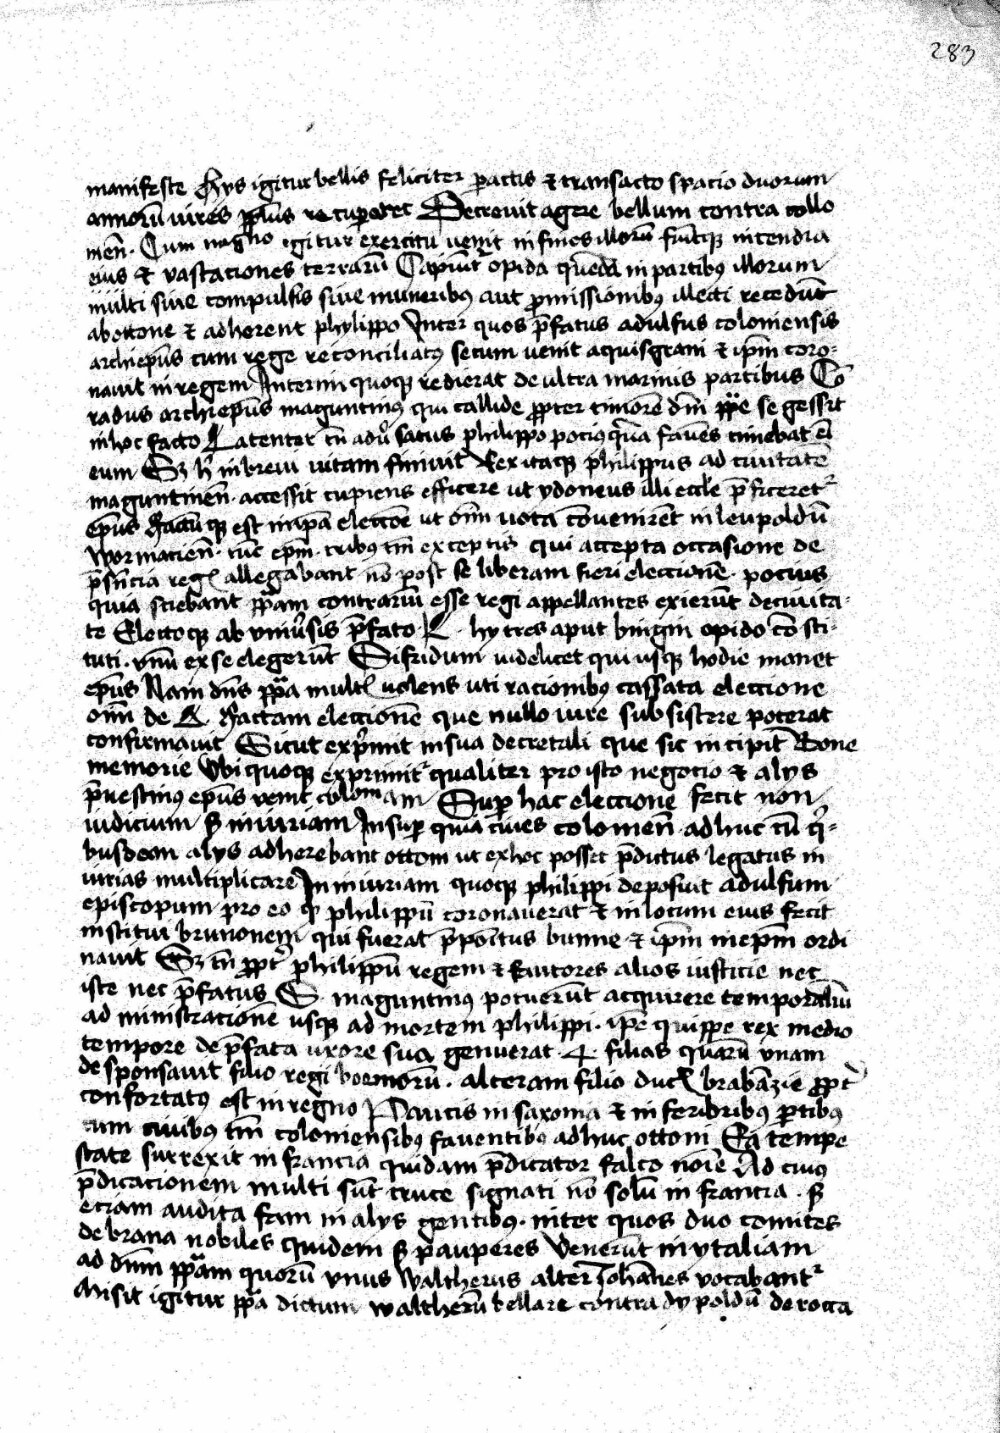 283
manifeste Hys igitur bellis feliciter ꝑactis ⁊ transacto spacio duorum
annorū uires ꝓrīus recuꝑaret Decreuit agere bellum contra collo
mēn. Cum magno igitur exercitu uenit in fines illorū fiūtqꝫ incendia
eius ⁊ vastaciones terrarū Capiūtᷣ opida quedā in partibꝰ illorum
multi siue compulsis siue muneribꝰ aut ꝓmissionibꝰ illecti recedūt
ab ottone ⁊ adherent phylippo Inter quos p̄fatus adulfus coloniensis
archiep̄us cum rege reconciliatꝰ secum uenit aquisgrani ⁊ ip̄m coro-
nauit in regem Interim quoqꝫ redierat de ultra marinis partibus Cō
radus archiep̄us maguntinꝰ qui callide ꝓpter timorē dn̄i pp̄e se gessit
in hoc facto Latenter tn̄ adu᷒satus philippo pociꝰ quā fauēs timebat eī
eum Sꝫ h̓ in breui uitam finiuit Rex itaqꝫ philippus ad ciuitatē
maguntinēn. accessit cupiens efficere ut ydoneus illi eccl̄e p̄ficeretᷣ
ep̄us Factūqꝫ est in ip̄a elecc̄oe ut om̄i uota cōuenirēt in leupoldū
wormaciēn. tūc ep̄m. tribus tm̄ exceptis qui accepta occasione de
p̄sn̄cia regꝭ allegabant nō post se liberam fieri eleccionē. pocius
quia sciebant pp̄am contrariū esse regi appellantes exierūt de ciuita-
te Electoqꝫ ab vniu᷒sis p̄fato L. hy tres aput bingin opido cōsti-
tuti. vnū ex se elegerūt Sifridum uidelicet qui usqꝫ hodie manet
ep̄us Nam dn̄s pp̄a multꝭ uolens uti racionibꝰ cassata eleccione
om̄i de L. Factam eleccionē que nullo iure subsistere poterat
confirmauit Sicut exp̄mit in sua decretali que sic incipit Bone
memorie Vbi quoqꝫ exprimitᷣ qualiter pro isto negocio ⁊ alys
p̄nestinꝰ ep̄us venit coloniam Suꝑ hac eleccione fecit non
iudicium sꝫ iniuriam Insuꝑ quia ciues colonien̄ adhuc cū qͥ-
busdam alys adherebant ottoni ut ex hoc posset p̄dictus legatus in
iurias multiplicare In iniuriam quoqꝫ philippi deposuit adulfum
episcopum pro eo qꝫ philippū coronauerat ⁊ in locum eius fecit
institui brunonem qui fuerat p̄pōitus bunne ⁊ ip̄m in ep̄m ordi
nauit Sꝫ tn̄ ꝓptᷣ philippū regem ⁊ fautores alios iusticie nec
iste nec p̄fatus S. maguntinꝰ potuerūt acquirere temporaliū
administracionē usqꝫ ad mortem philippi. ip̄e quippe rex medio
tempore de p̄fata uxore sua genuerat. 4 filias quarū vnam
desponsauit filio regi boemorū. alteram filio ducꝭ brabāzie ꝓptᷣ
confortatꝰ est in regno Paucis in saxonia ⁊ inferioribus ꝑtibꝰ
cum ciuibꝰ tm̄ coloniensibꝰ fauentibꝰ adhuc ottoni Ea tempe
state surrexit in francia quidam p̄dicator falco noīe Ad cuiꝰ
p̄dicacionem multi sūt cruce signati nō solū in francia. sꝫ
eciam audita fam in alys gentibꝰ. inter quos duo comites
de brana nobiles quidem sꝫ pauperes Venerūt in ytaliam
ad dn̄m pp̄am quorū vnus waltherus alter Iohānes vocabantᷣ
Misit igitur pp̄a dictum waltherū bellare contra dypoldū de rocca